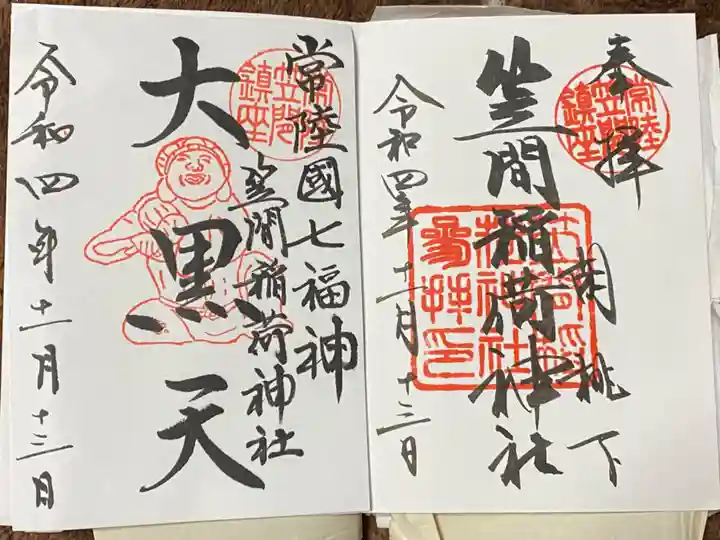 奉拝
胡桃下
常陸
笠間
鎮座
笠間稲荷神社
令和四年十一月十三日
常陸國七福神
笠間稲荷神社
常陸
笠間
鎮座
大黒天
令和四年十一月十三日